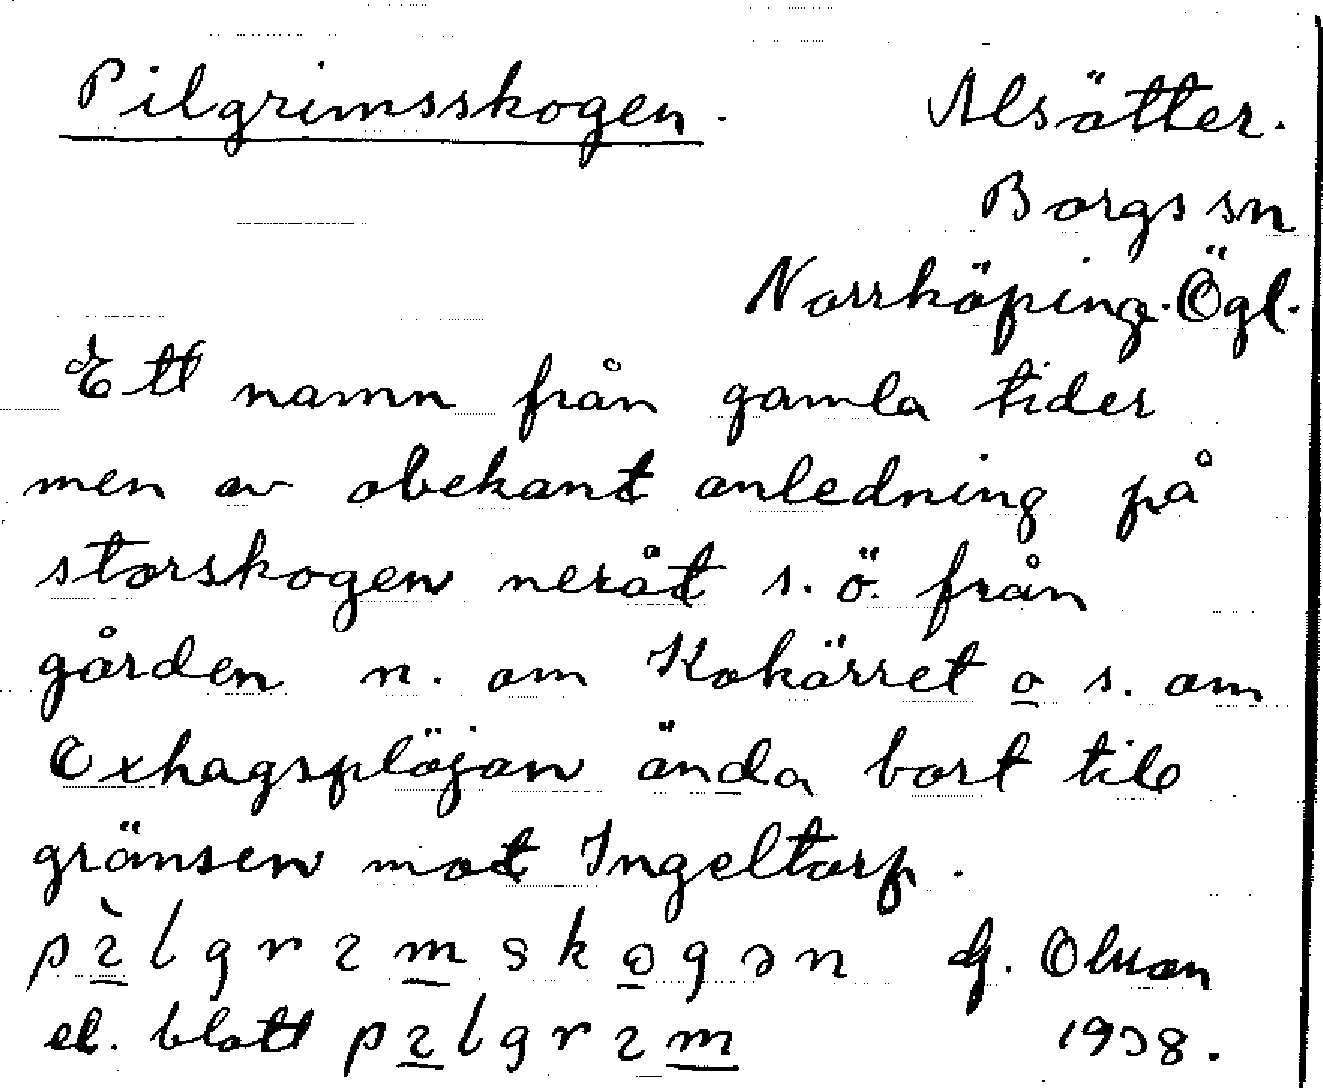 Pilgrimsskogen. Alsätter.
Borgs sn
Norrköping. Ögl.
Ett namn från gamla tider
men av obekant anledning på
storskogen neråt s.ö. från
gården n. om Kokärret o s. om
Oxhagsplöjan ända bort till
gränsen mot Ingeltorp.
pìlgrımskogən G. Olsson
el. blott pılgrım 1938.